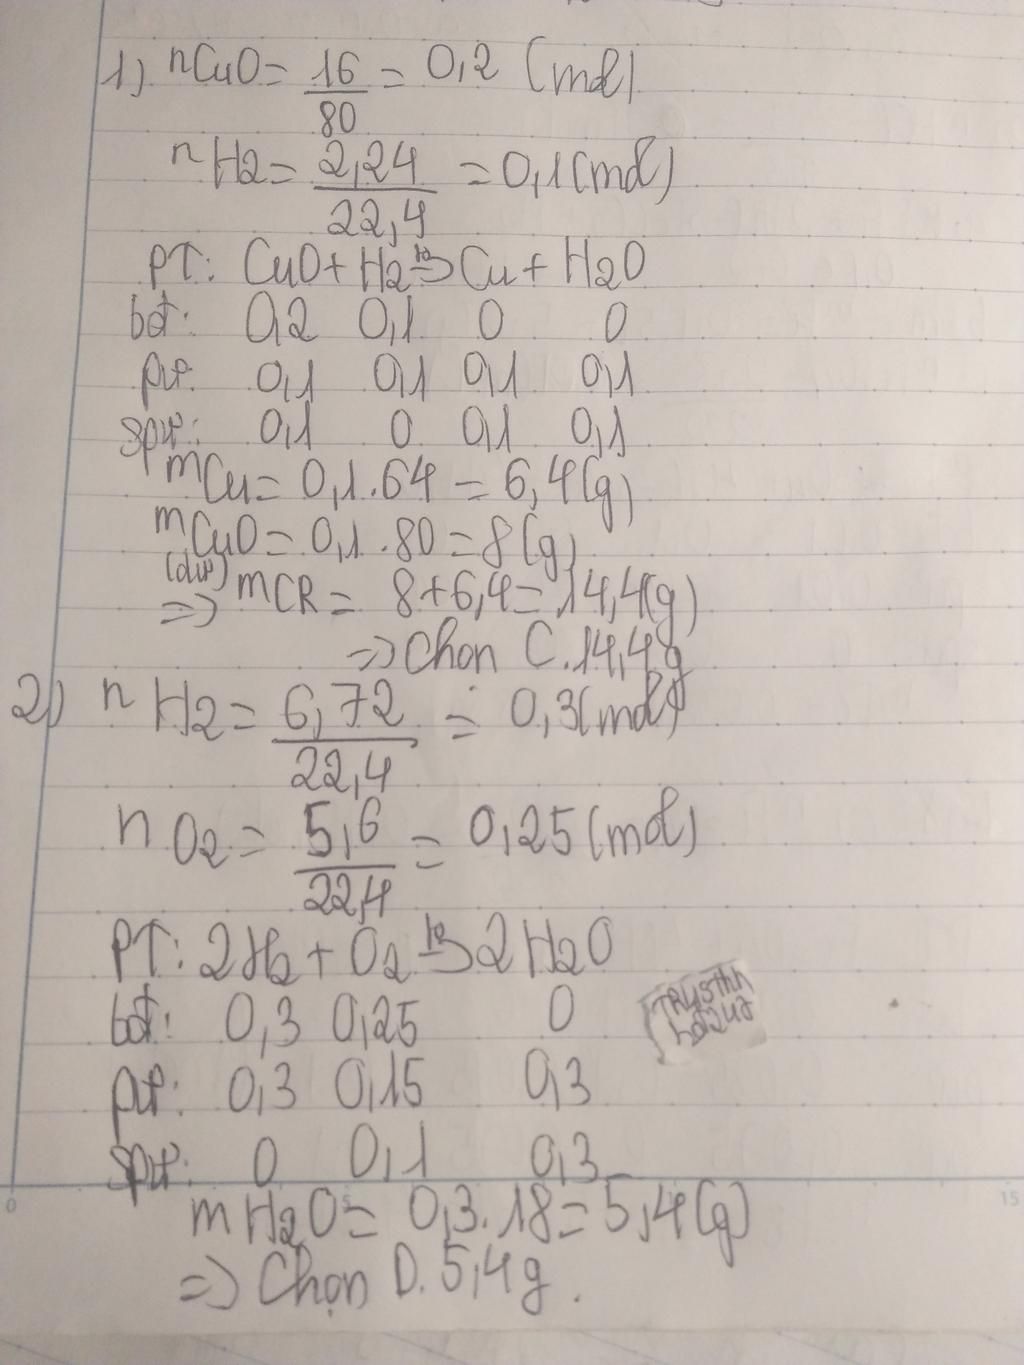 1) nCuO = 16/80 = 0,2 (mol)
nH2 = 2,24/22,4 = 0,1 (mol)
PT: CuO + H2 t°→ Cu + H2O
bđ: 0,2 0,1 0 0
pư: 0,1 0,1 0,1 0,1
spư: 0,1 0 0,1 0,1
mCu = 0,1.64 = 6,4(g)
mCuO = 0,1.80 = 8(g)
(dư)
=> mCR = 8+6,4 = 14,4(g)
=> Chọn C. 14,4g
2) nH2 = 6,72/22,4 = 0,3(mol)
nO2 = 5,6/22,4 = 0,25(mol)
PT: 2H2 + O2 t°→ 2H2O
bđ: 0,3 0,25 0
pư: 0,3 0,15 0,3
spư: 0 0,1 0,3
mH2O = 0,3.18 = 5,4(g)
=> Chọn D. 5,4g.
0 5 15